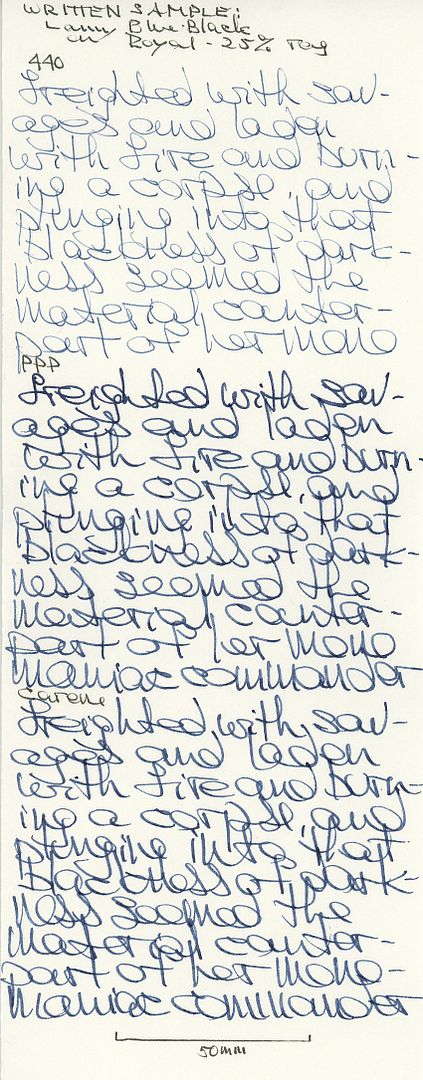 WRITTEN SAMPLE:
Lamy Blue-Black
on Royal - 25% rag
440
freighted with sav-
ages and laden
with fire and burn-
ing a corpse, and
plunging into that
blackness of dark-
ness seemed the
material counter-
part of her mono
PPP
freighted with sav-
ages and laden
with fire and burn-
ing a corpse, and
plunging into that
blackness of dark-
ness seemed the
material counter-
part of her mono
maniac commander
Carene
freighted with sav-
ages and laden
with fire and burn-
ing a corpse, and
plunging into that
blackness of dark-
ness seemed the
material counter-
part of her mono-
maniac commander
50mm